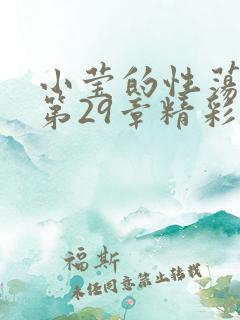 小莹的性荡
第29章精彩
福斯
未经同意禁止转载